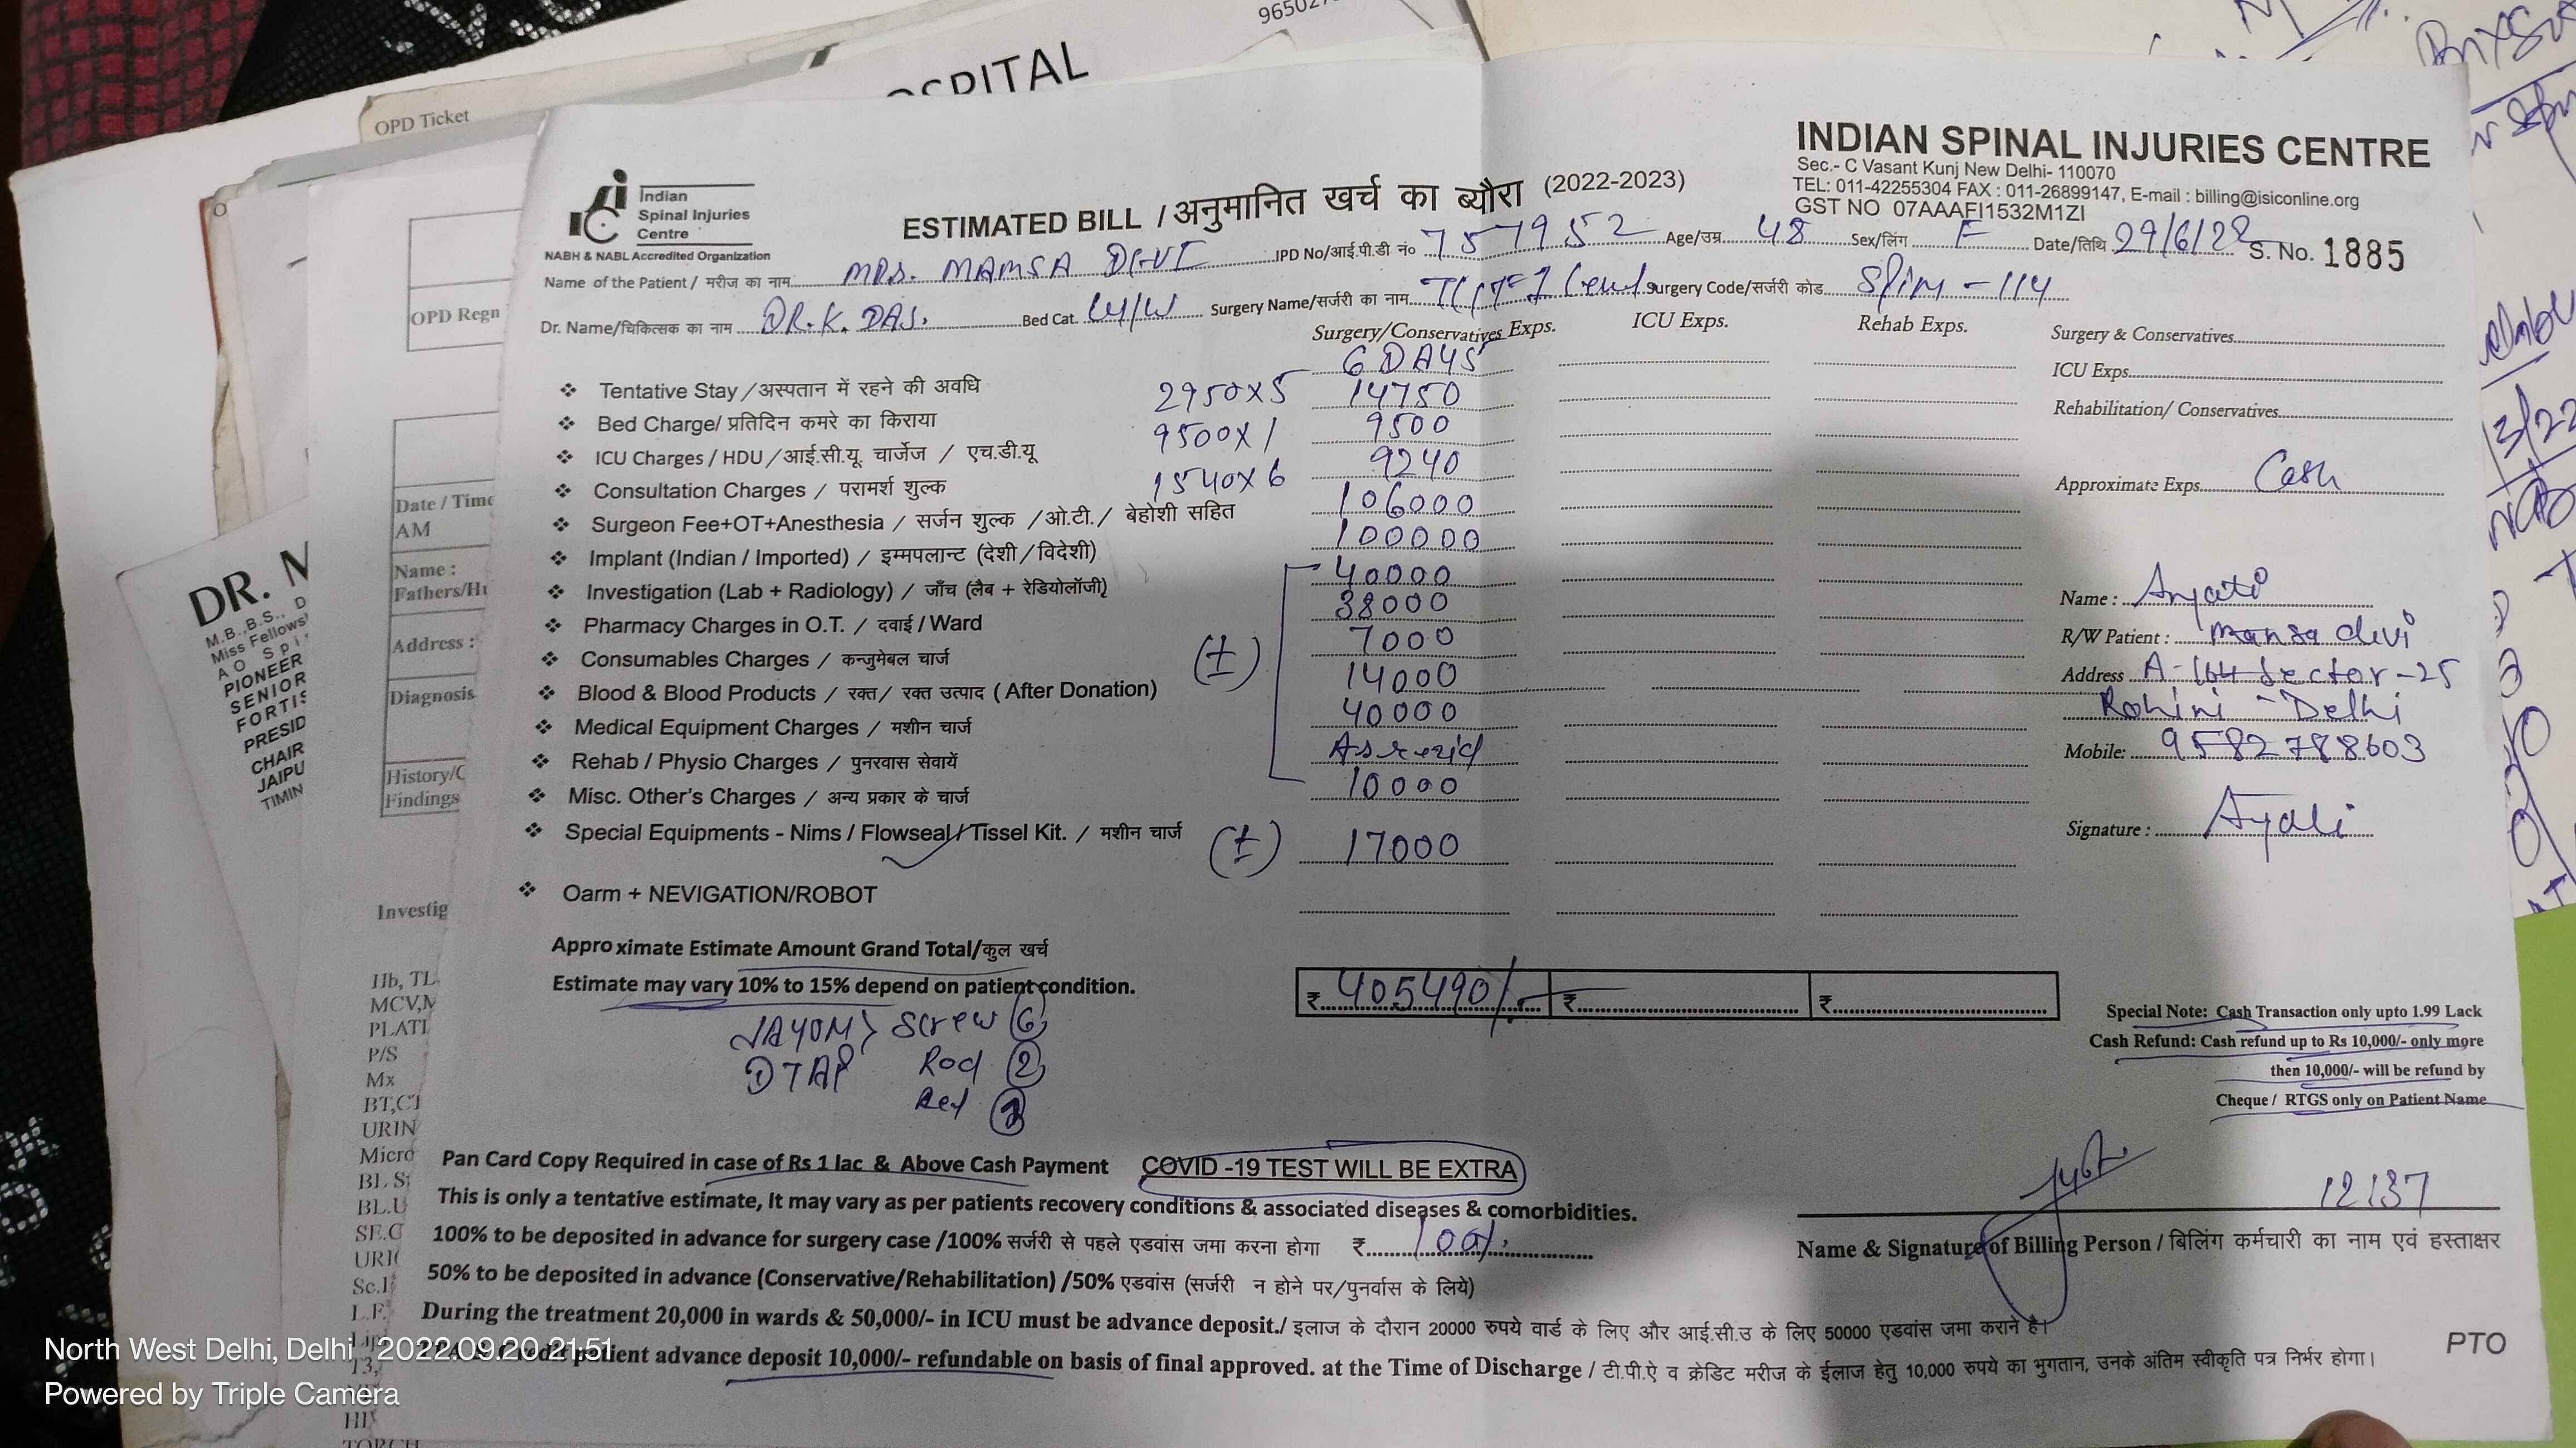 96502
OSPITAL
OPD Ticket
OPD Regn
Date / Time
AM
Name :
Fathers/Hu
Address :
Diagnosis
History/C
Findings
Investig
Hb, TL
MCV,M
PLATE
P/S
Mx
BT,CT
URIN
Micro
BL.U
Sc.I
L.F.
T3,
DR. M
M.B.,B.S., D
Miss Fellows
A O Spi
PIONEER
SENIOR
FORTIS
PRESID
CHAIR
JAIPU
TIMIN
Indian
Spinal Injuries
Centre
NABH & NABL Accredited Organization
ESTIMATED BILL / अनुमानित खर्च का ब्यौरा (2022-2023)
INDIAN SPINAL INJURIES CENTRE
Sec.- C Vasant Kunj New Delhi- 110070
TEL: 011-42255304 FAX : 011-26899147, E-mail : billing@isiconline.org
GST NO 07AAAFI1532M1ZI
Name of the Patient / मरीज का नाम MRS. MAMSA DEVI IPD No/आई.पी.डी नं० 757952 Age/उम्र 48 Sex/लिंग F Date/तिथि 29/6/22 S. No. 1885
Dr. Name/चिकित्सक का नाम DR. K. DAS. Bed Cat. Surgery Name/सर्जरी का नाम Surgery Code/सर्जरी कोड Spin - 114
Surgery/Conservatives Exps. ICU Exps. Rehab Exps. Surgery & Conservatives
Tentative Stay / अस्पतान में रहने की अवधि 6 DAYS
ICU Exps.
Bed Charge/ प्रतिदिन कमरे का किराया 2950x5 14750
Rehabilitation/ Conservatives
ICU Charges / HDU / आई.सी.यू. चार्जेज / एच.डी.यू 9500x1 9500
Consultation Charges / परामर्श शुल्क 1540x6 9240
Approximate Exps. Cash
Surgeon Fee+OT+Anesthesia / सर्जन शुल्क /ओ.टी./ बेहोशी सहित 106000
Implant (Indian / Imported) / इम्मपलान्ट (देशी / विदेशी) 100000
Investigation (Lab + Radiology) / जाँच (लैब + रेडियोलॉजी) 40000
Name :
Pharmacy Charges in O.T. / दवाई / Ward 38000
R/W Patient : mansa devi
Consumables Charges / कन्जुमेबल चार्ज (±) 7000
Address A-164 Sector-25
Blood & Blood Products / रक्त/ रक्त उत्पाद ( After Donation) 14000
Rohini - Delhi
Medical Equipment Charges / मशीन चार्ज 40000
Mobile: 9582788603
Rehab / Physio Charges / पुनरवास सेवायें
Misc. Other's Charges / अन्य प्रकार के चार्ज 10000
Signature :
Special Equipments - Nims / Flowseal / Tissel Kit. / मशीन चार्ज (±) 17000
Oarm + NEVIGATION/ROBOT
Approximate Estimate Amount Grand Total/कुल खर्च
Estimate may vary 10% to 15% depend on patient condition. ₹ 405490/- ₹ ₹
JAYON > Screw (6)
Rod (2)
Special Note: Cash Transaction only upto 1.99 Lack
Cash Refund: Cash refund up to Rs 10,000/- only more
then 10,000/- will be refund by
Cheque / RTGS only on Patient Name
Pan Card Copy Required in case of Rs 1 lac & Above Cash Payment COVID -19 TEST WILL BE EXTRA
This is only a tentative estimate, It may vary as per patients recovery conditions & associated diseases & comorbidities.
12137
100% to be deposited in advance for surgery case /100% सर्जरी से पहले एडवांस जमा करना होगा ₹ 100%
Name & Signature of Billing Person / बिलिंग कर्मचारी का नाम एवं हस्ताक्षर
50% to be deposited in advance (Conservative/Rehabilitation) /50% एडवांस (सर्जरी न होने पर/पुनर्वास के लिये)
During the treatment 20,000 in wards & 50,000/- in ICU must be advance deposit./ इलाज के दौरान 20000 रुपये वार्ड के लिए और आई.सी.उ के लिए 50000 एडवांस जमा कराने है।
patient advance deposit 10,000/- refundable on basis of final approved. at the Time of Discharge / टी.पी.ऐ व क्रेडिट मरीज के ईलाज हेतु 10,000 रुपये का भुगतान, उनके अंतिम स्वीकृति पत्र निर्भर होगा।
PTO
North West Delhi, Delhi 2022.09.20 21:51
Powered by Triple Camera